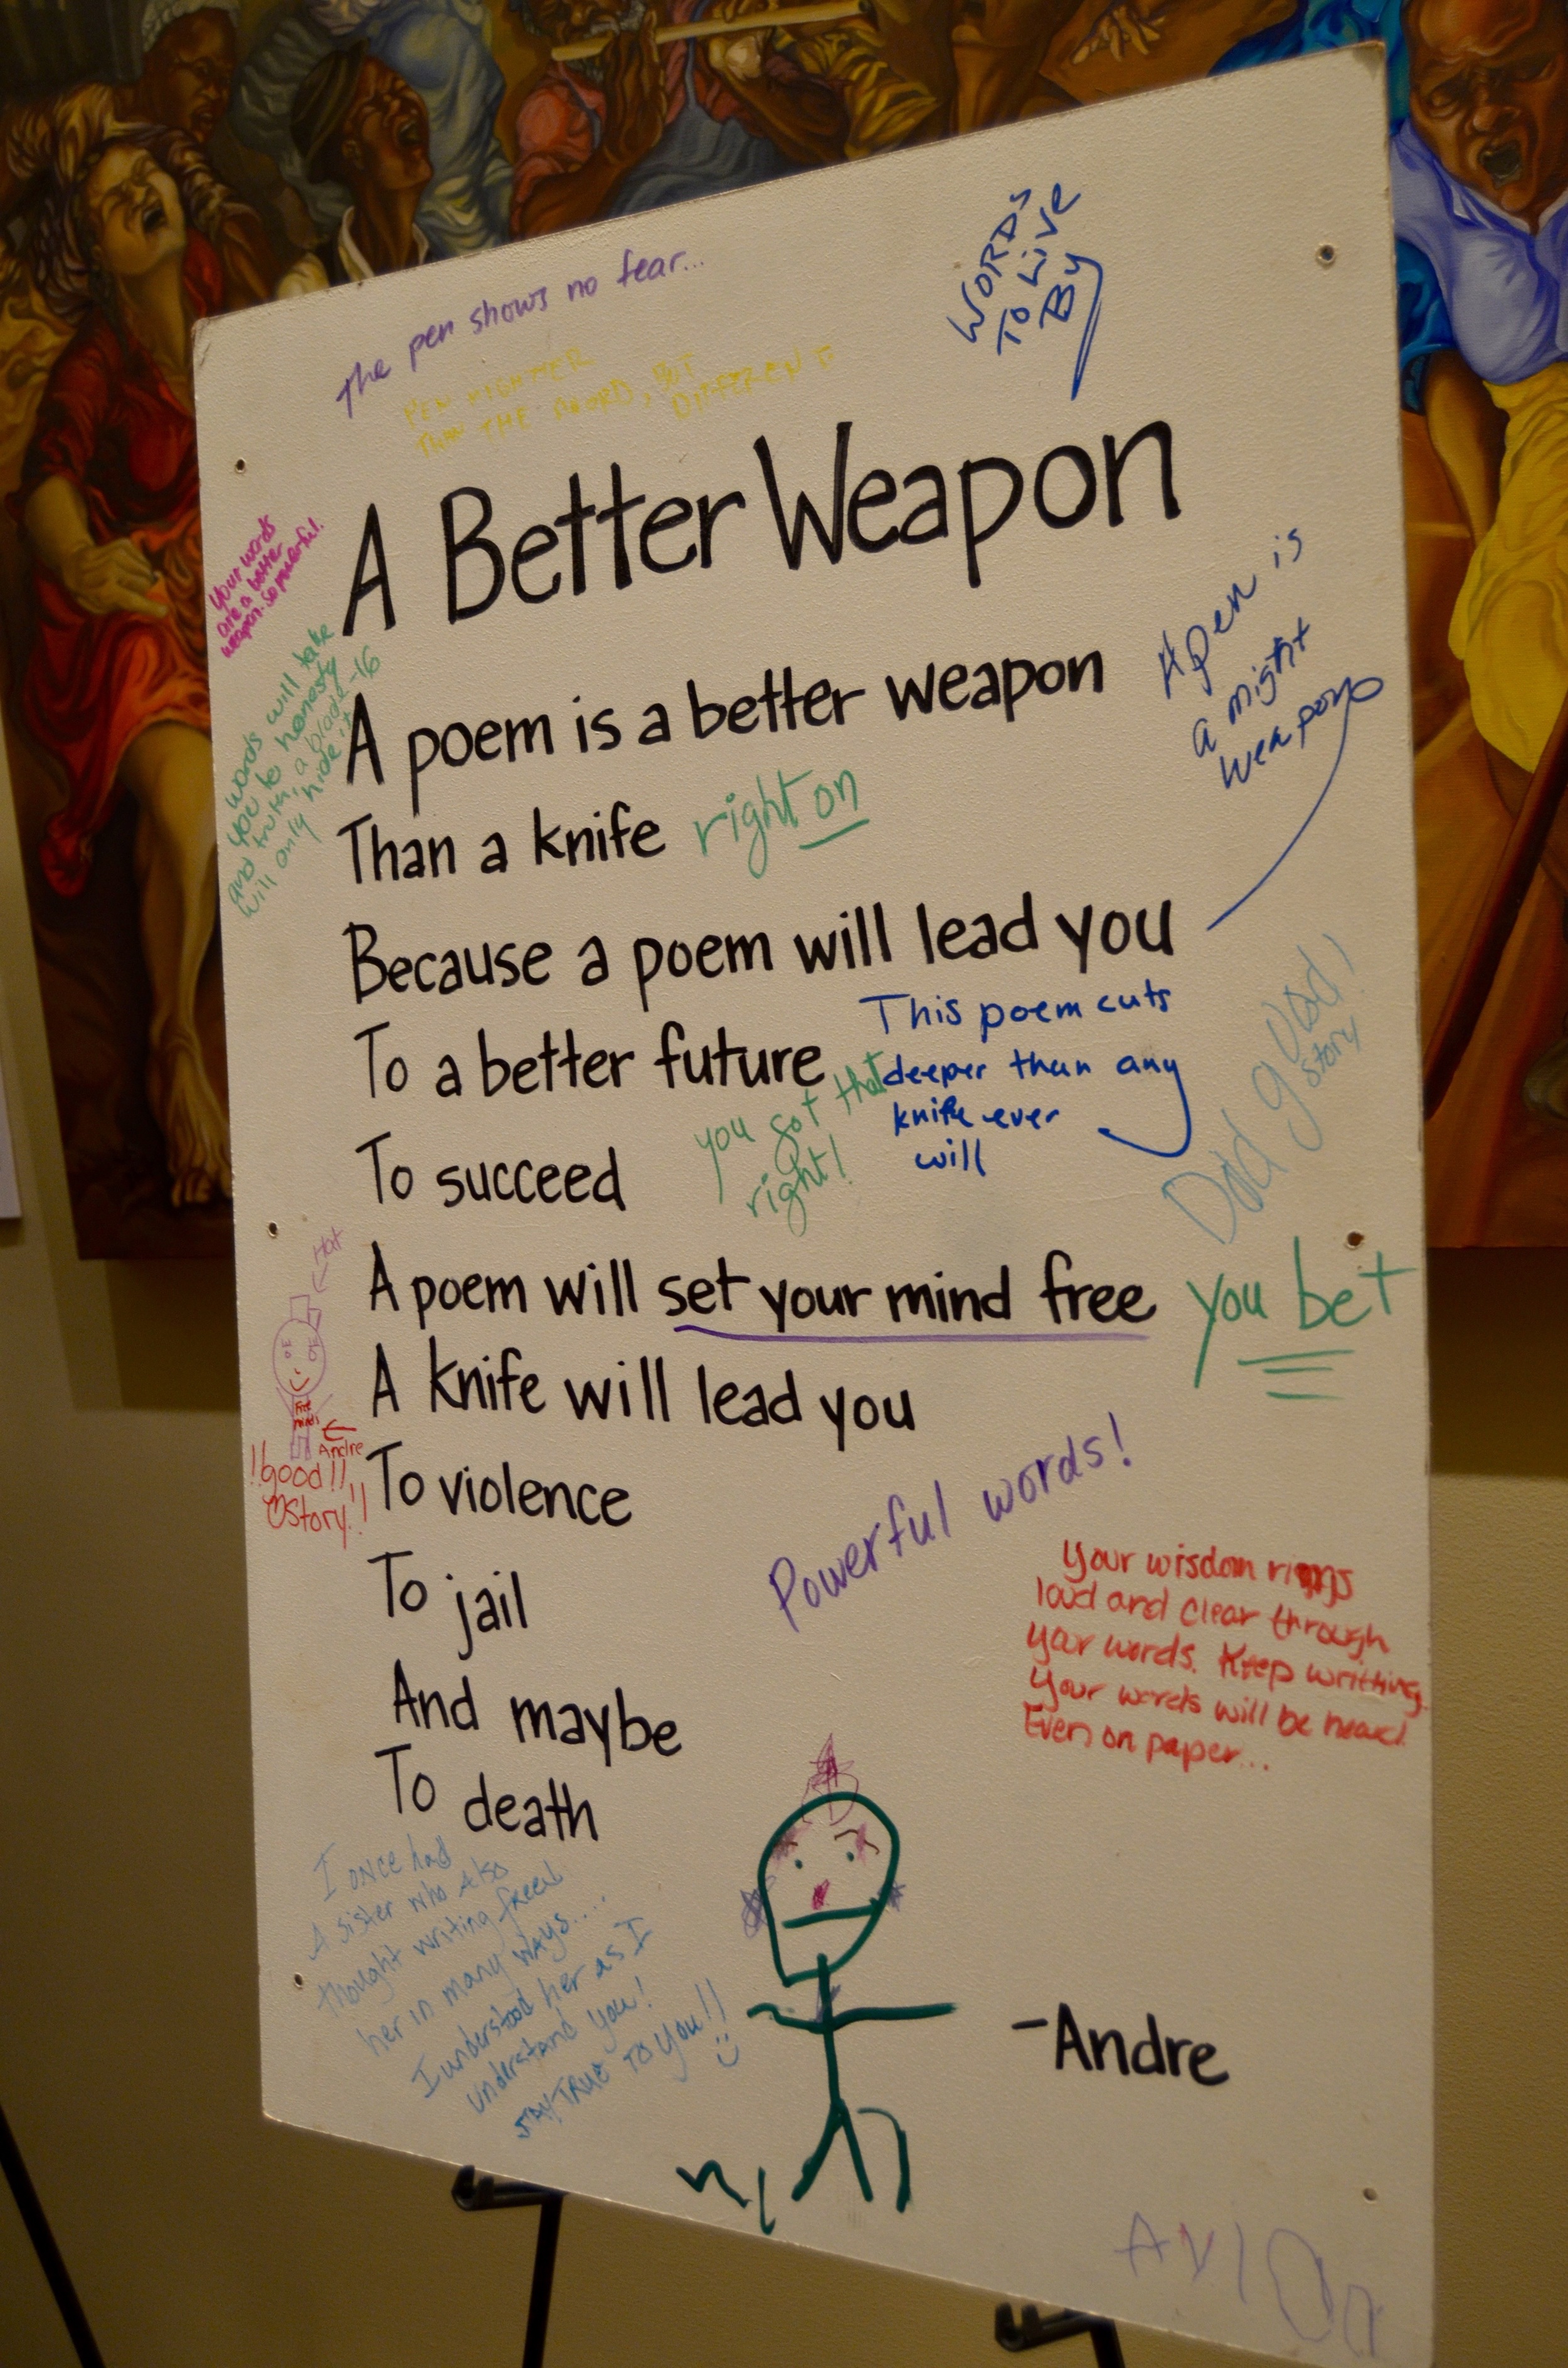 The pen shows no fear...
PEN MIGHTIER
THAN THE SWORD, BUT
DIFFERENT
WORDS
To Live
By
A Better Weapon
Your words
are a better
weapon. So powerful.
words will take
you to honesty
and truth, a blade
will only hide it
-16
A poem is a better weapon
A pen is
a might
weapon
Than a knife
right on
Because a poem will lead you
To a better future
This poem cuts
deeper than any
knife ever
will
you got that
right!
Did good!
story
To succeed
A poem will set your mind free
you bet
Hat
A knife will lead you
Free
minds
Andre
!!good!!
story!!
To violence
Powerful words!
To jail
Your wisdom rings
loud and clear through
your words. Keep writting
Your words will be heard
Even on paper...
And maybe
To death
I once had
A sister who also
thought writing freed
her in many ways....
I understood her as I
understand you!
STAY TRUE TO YOU!!
-Andre